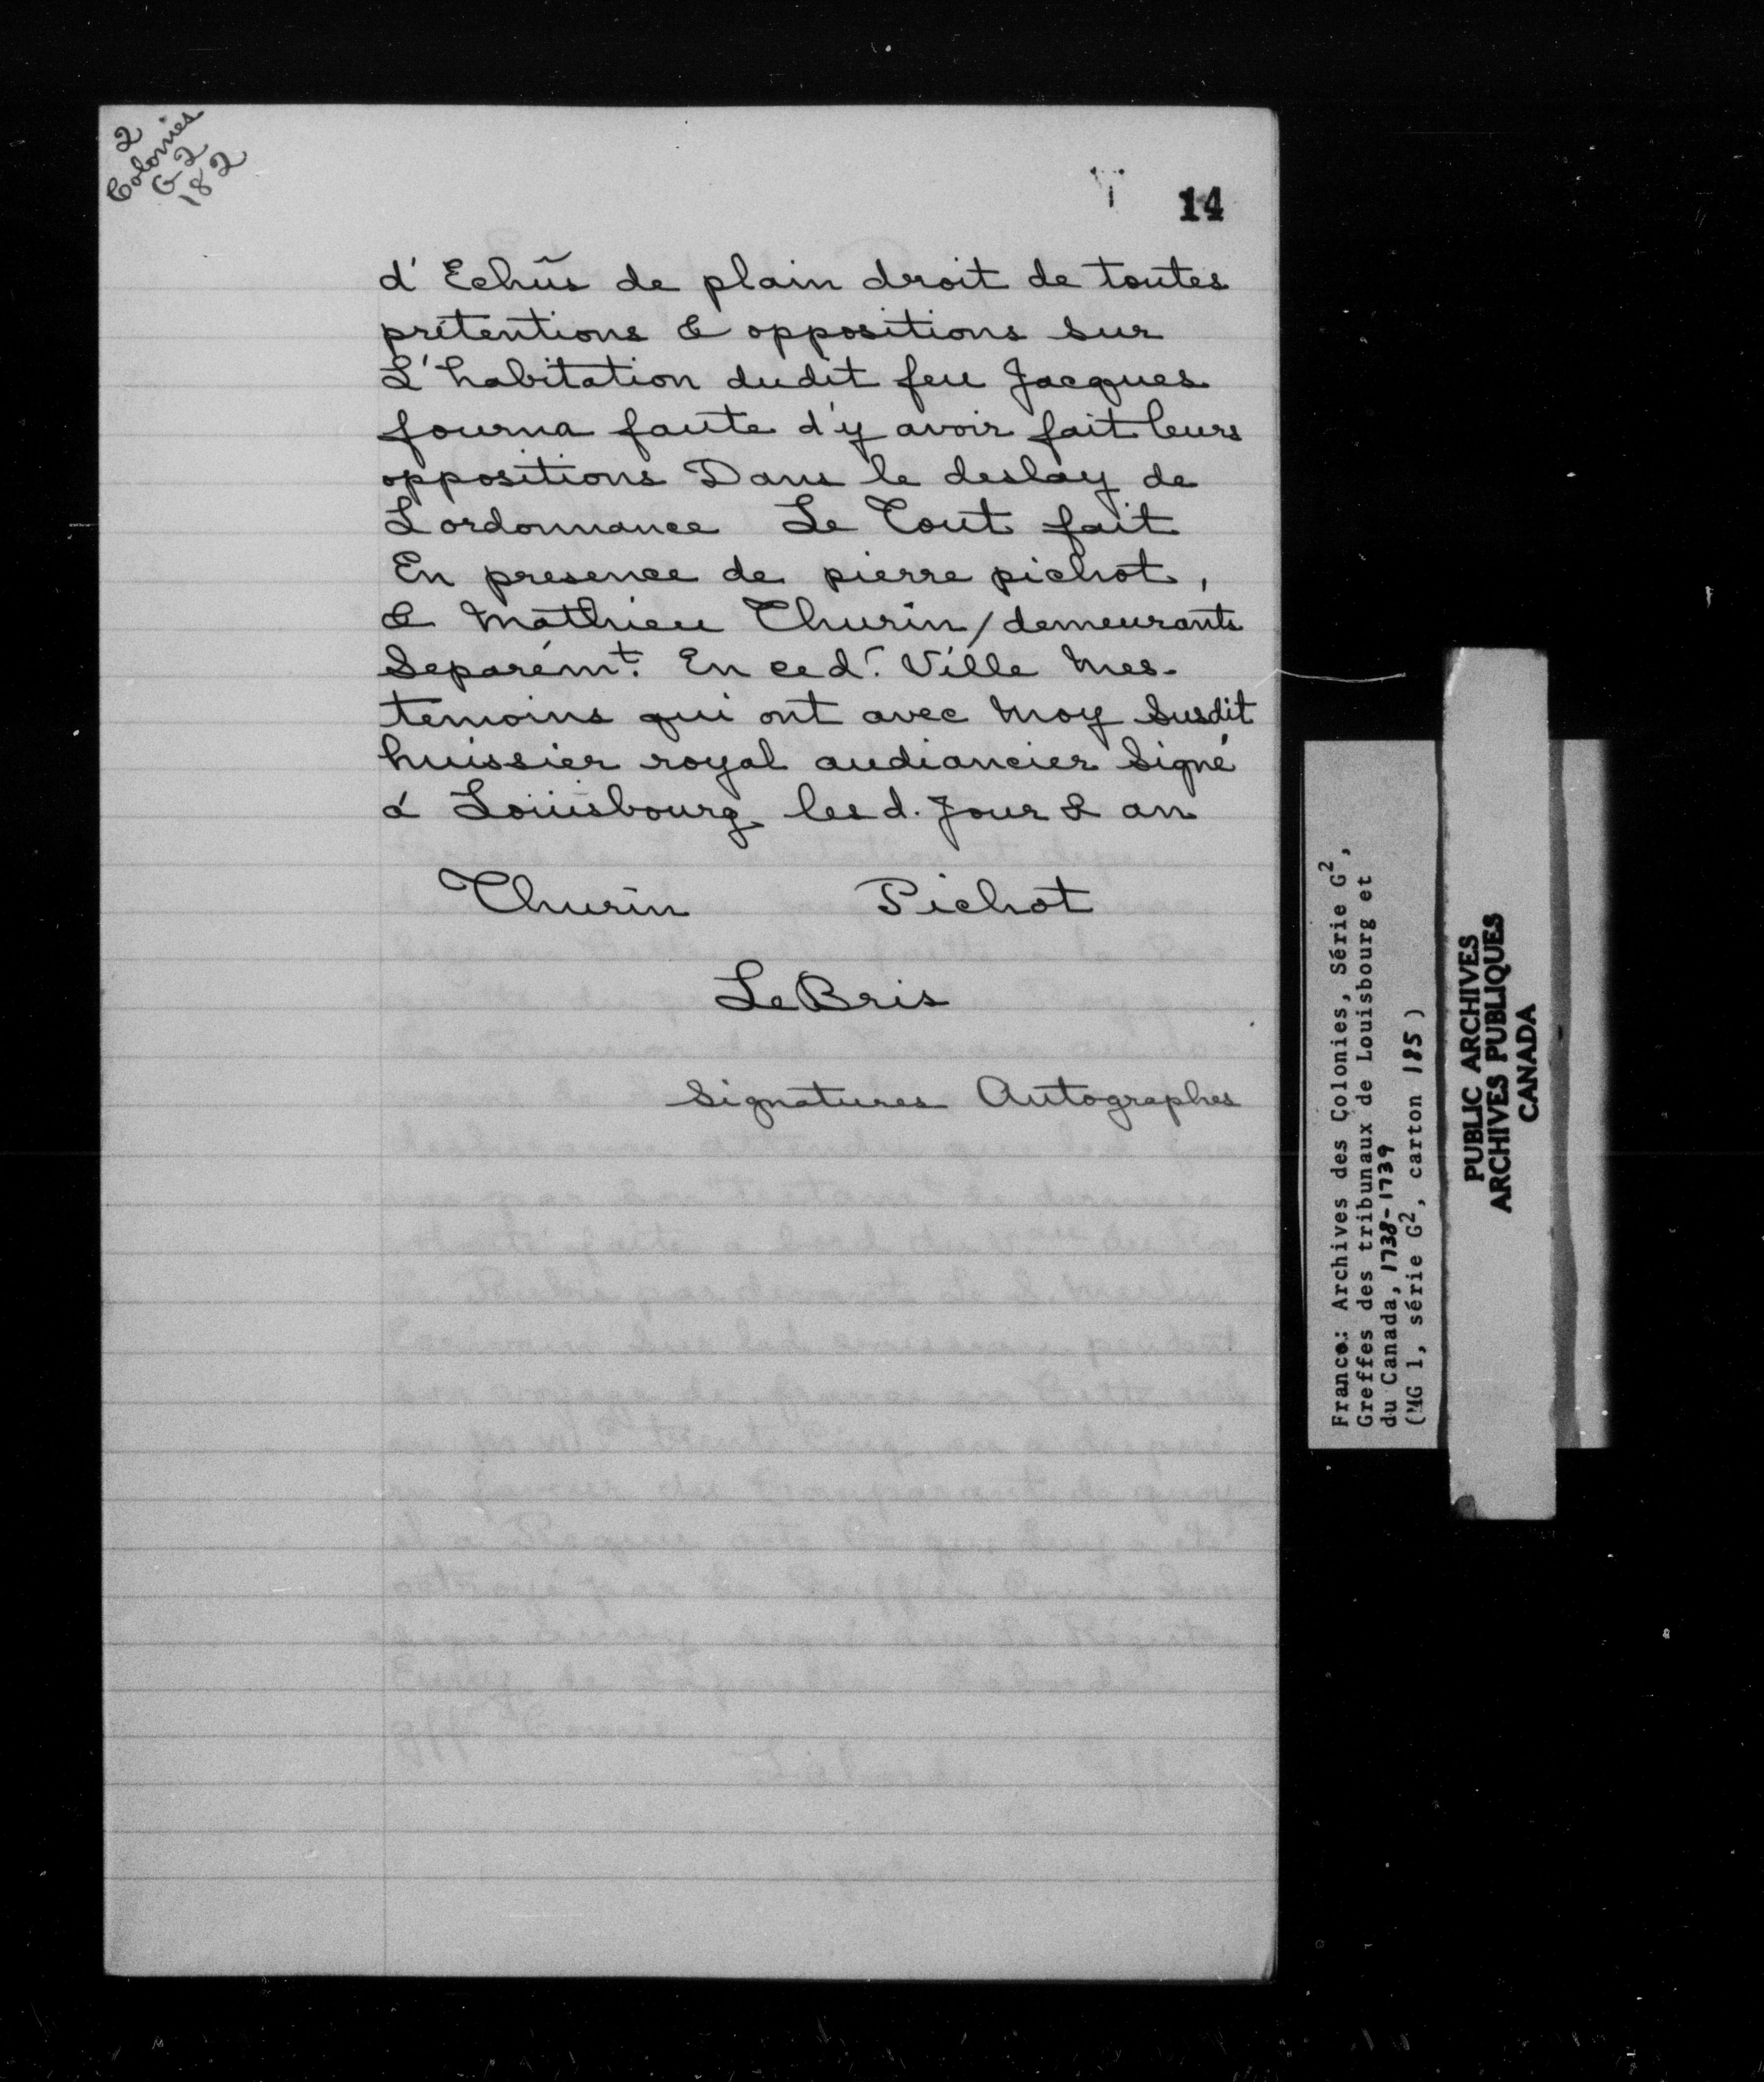 2
Colonies
G-2
182
14
d' Echûs de plain droit de toutes
prétentions & oppositions sur
L'habitation dudit feu Jacques
fourna faute d'y avoir fait leurs
oppositions Dans le deslay de
L ordonnance Le Tout fait
En presence de pierre pichot,
& Mathieu Thurin / demeurants
Separém.t En ced. Ville Mes-
temoins qui ont avec Moy Susdit
huissier royal audiancier Signé
á Loüisbourg les d. Jour & an
Thurin Pichot
Le Bris
Signatures Autographes
France: Archives des Colonies, Série G2,
Greffes des tribunaux de Louisbourg et
du Canada, 1738-1739
(MG 1, série G2, carton 185)
PUBLIC ARCHIVES
ARCHIVES PUBLIQUES
CANADA